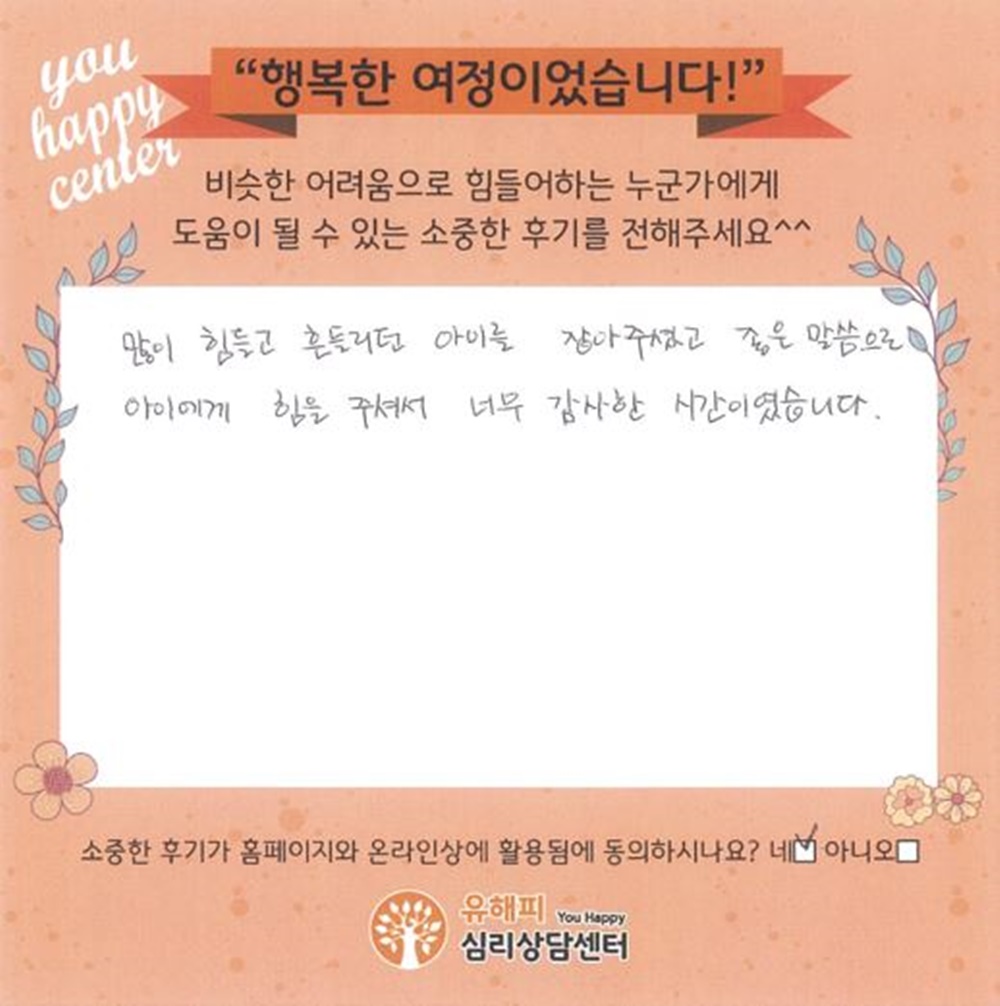 you
happy
center
“행복한 여정이었습니다!”
비슷한 어려움으로 힘들어하는 누군가에게
도움이 될 수 있는 소중한 후기를 전해주세요^^
많이 힘들고 흔들리던 아이를 잡아주셨고 좋은 말씀으로
아이에게 힘을 주셔서 너무 감사한 시간이였습니다.
소중한 후기가 홈페이지와 온라인상에 활용됨에 동의하시나요? 네☑ 아니오☐
유해피 You Happy
심리상담센터